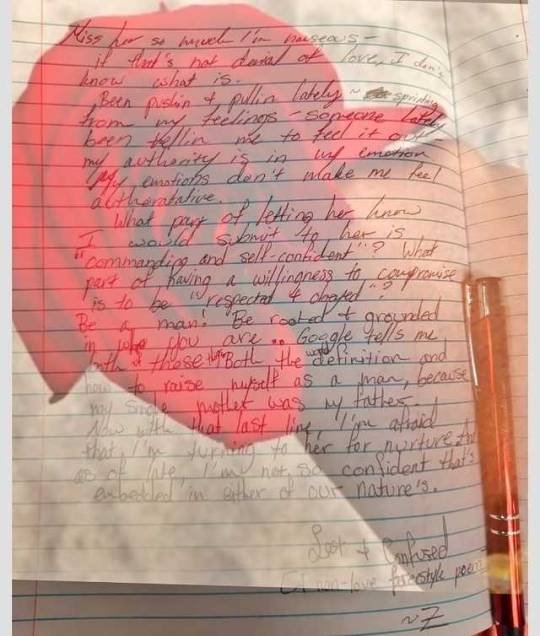 Miss her so much I'm nauseous -
if that's not denial of love, I don't
know what is.
Been pushin & pullin lately ~ sprinting
from my feelings - someone lately
been tellin me to feel it out -
my authority is in my emotion
My emotions don't make me feel
authoratative.
What part of letting her know
I would submit to her is
"commanding and self-confident"? What
part of having a willingness to compromise
is to be "respected & obeyed"?
Be a man! Be rooted & grounded
in who you are .. Google tells me
both these Both the definition and
how to raise myself as a man, because
my single mother was my father.
Now with that last line, I'm afraid
that I'm turning to her for nurture
as of late, I'm not so confident that's
embedded in either of our nature's.
Lost & Confused
A non-love freestyle poem
~Z